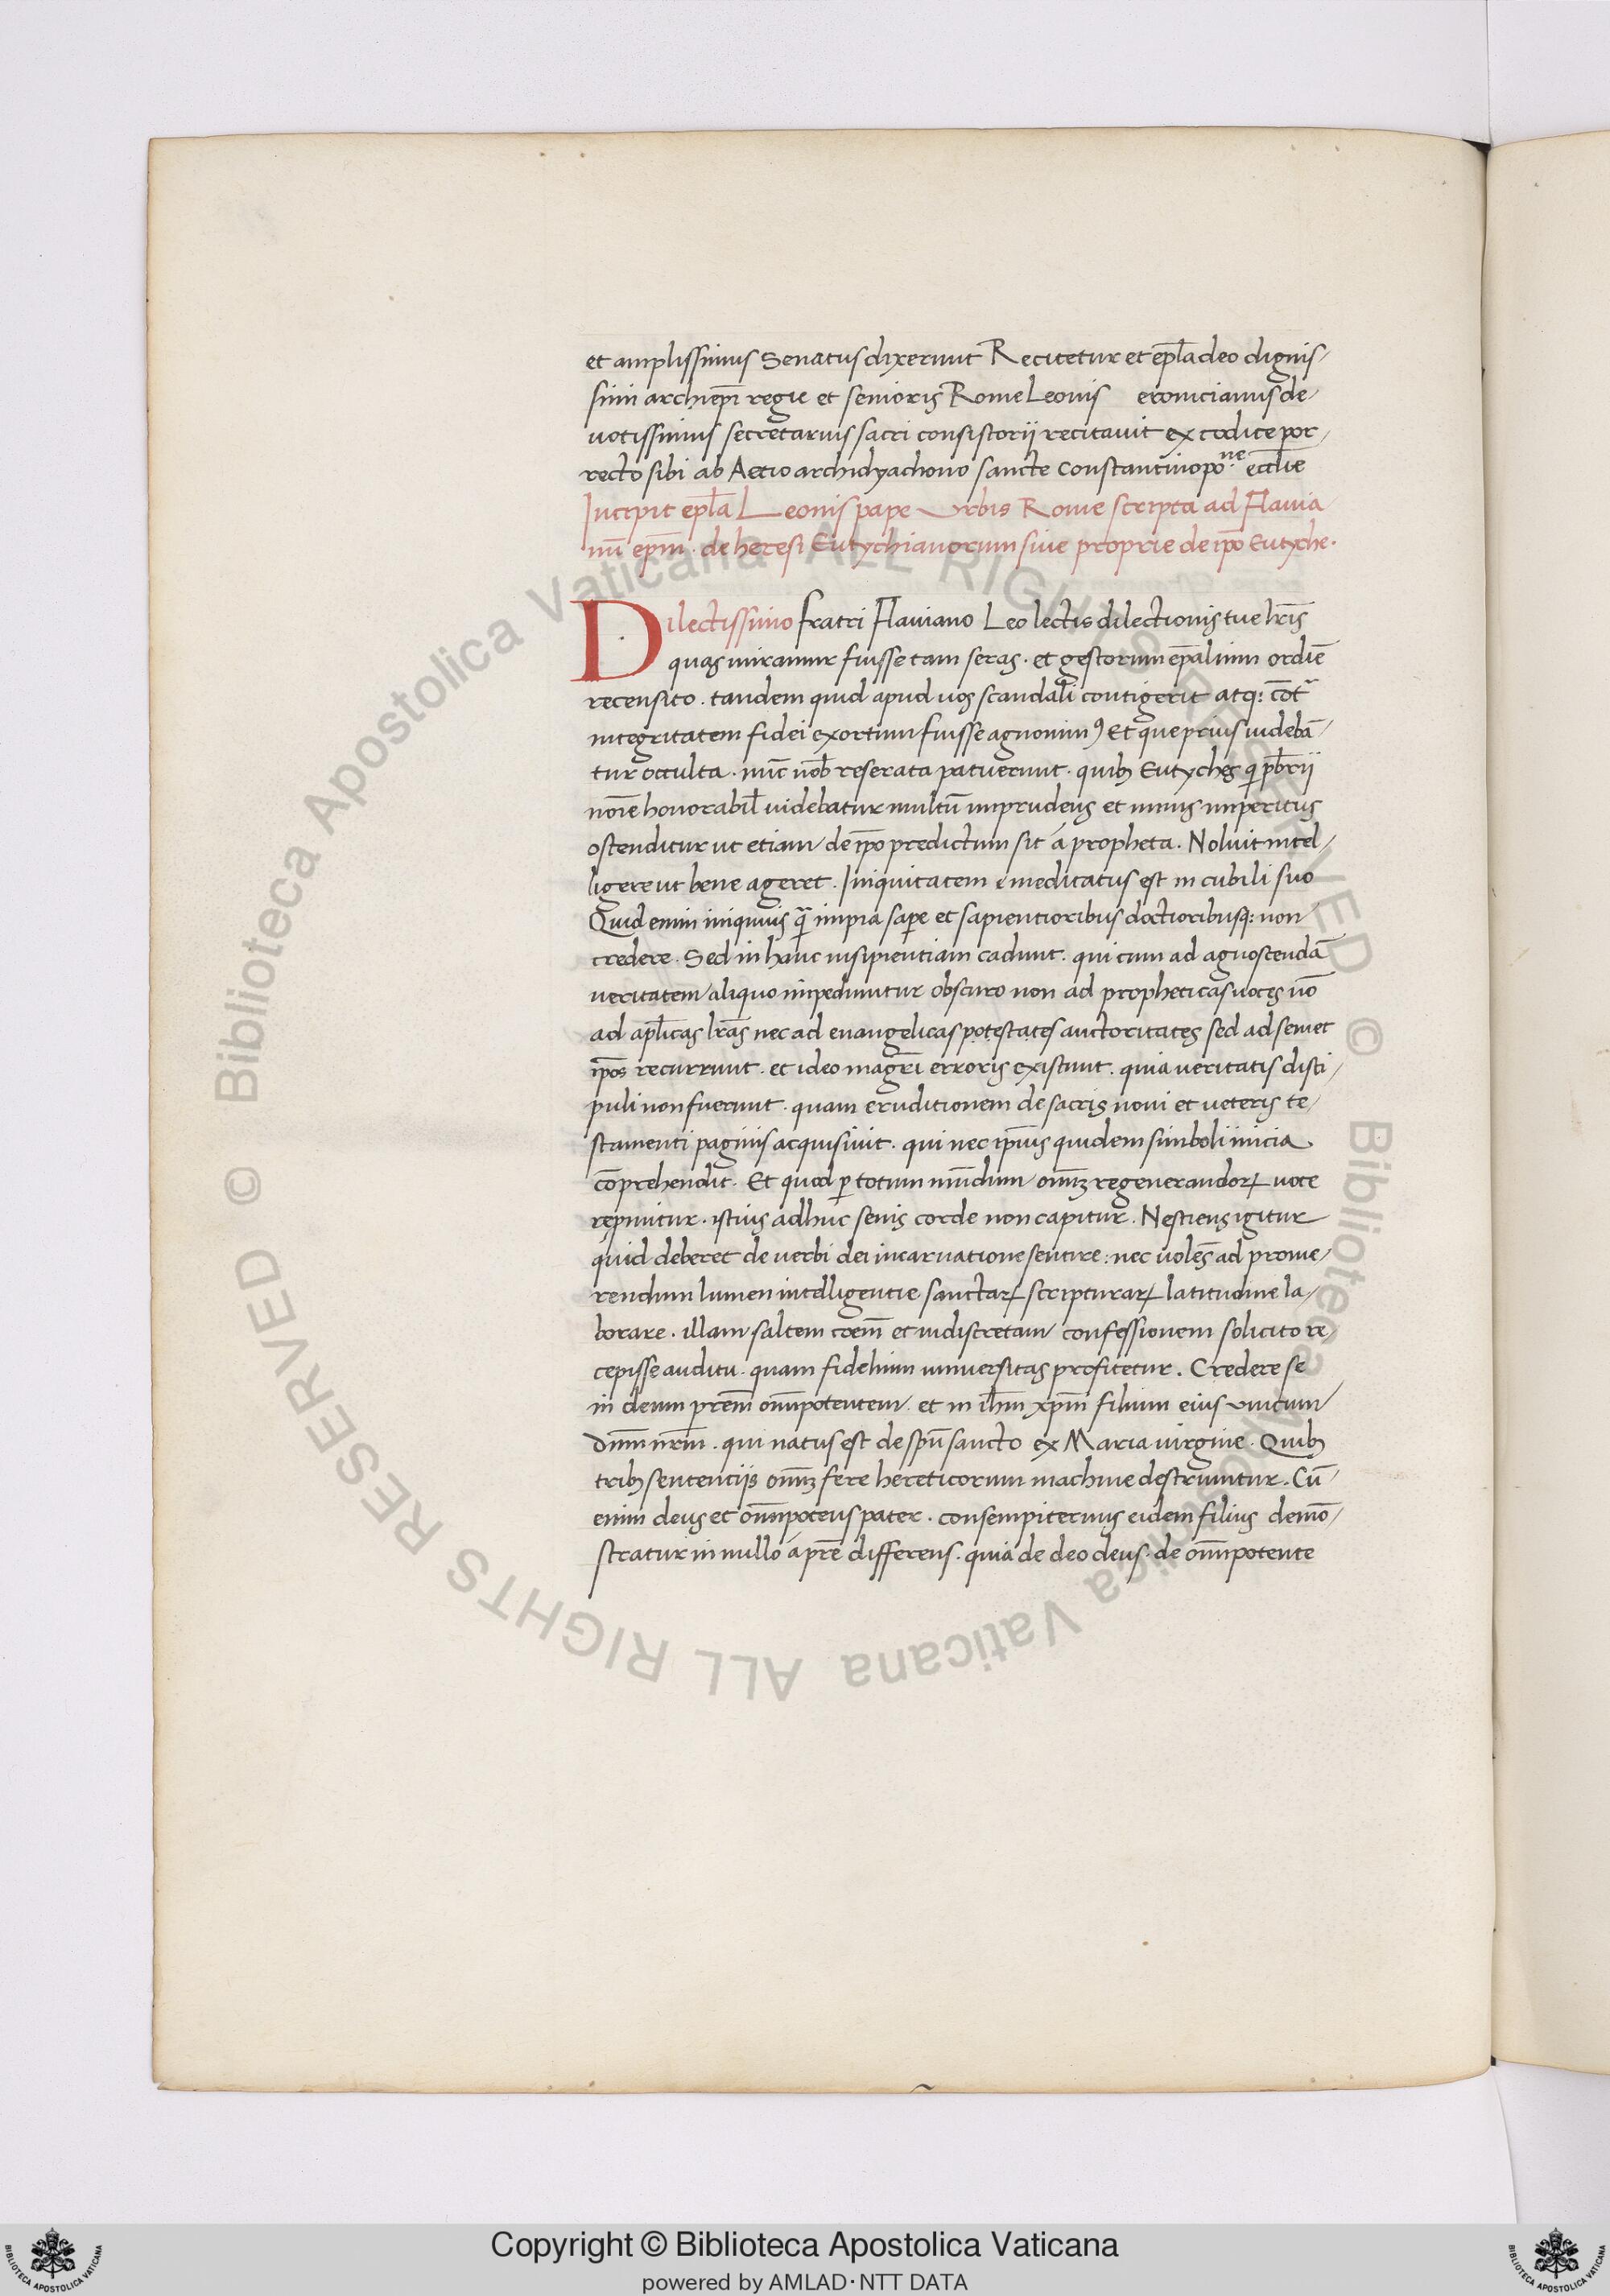 et amplissimus Senatus dixerunt Recitetur et ep̅la deo dignis/
simi archiep̅i regie et senioris Rome Leonis eronicianus de/
uotissimus secretarius sacri consistorii recitauit ex codice por/
recto sibi ab Aetio archidyachono sancte Constantinopo.ne eccl̅ie
Incipit ep̅la Leonis pape Urbis Rome scripta ad Flauia
nu̅ ep̅m. de heresi Eutychianorum siue proprie de ip̅o Eutyche.
Dilectissimo fratri Flauiano Leo lectis dilectionis tue lr̅is
quas miramur fuisse tam seras. et gestorum ep̅alium ordie̅
recensito. tandem quid apud uos scandali contigerit atq; co̅t
integritatem fidei exortum fuisse agnouim9 Et que prius uideba̅/
tur occulta. nu̅c nob̅ reserata patuerunt. quib; Eutyches q pb̅rii
no̅ie honorabil̅ uidebatur multu̅ imprudens et nimis imperitus
ostenditur ut etiam de ip̅o predictum sit á propheta. Noluit intel/
ligere ut bene ageret. Iniquitatem e meditatus est in cubili suo
Quid enim iniquius qa̅ impia sape̅ et sapientioribus doctioribusq; non
credere. Sed in hanc insipientiam cadunt. qui cum ad agnoscenda̅
ueritatem aliquo impediuntur obscuro non ad propheticas uoces no̅
ad apl̅icas lr̅as nec ad euangelicas potestates auctoritates sed ad semet
ip̅os recurrunt. et ideo magr̅i erroris existunt. quia ueritatis disci/
puli non fuerunt. quam eruditionem de sacris noui et ueteris te/
stamenti paginis acquisiuit. qui nec ip̅ius quidem simboli inicia
co̅prehendit. Et quod p totum mu̅dum om̅iz regenerandoꝝ uoce
repmitur. istius adhuc senis corde non capitur. Nesciens igitur
quid deberet de uerbi dei incarnatione sentire: nec uole̅s ad prome/
rendum lumen intelligentie sanctaꝝ scripturaꝝ latitudine la/
borare. illam saltem co̅em̅ et indiscretam confessionem solicito re/
cepisse auditu. quam fidelium uniuersitas profitetur. Credere se
in deum pr̅em om̅ipotentem. et in ih̅m xp̅m filium eius unicum
dn̅m nr̅m. qui natus est de spu̅ sancto ex Maria uirgine. Quib;
trib; sentenciis om̅iz fere hereticorum machine destruuntur. Cu̅/
enim deus et om̅ipotens pater. consempiternus eidem filius demo̅/
stratur in nullo á pr̅e differens. quia de deo deus. de om̅ipotente
© Biblioteca Apostolica Vaticana ALL RIGHTS RESERVED © Biblioteca Apostolica Vaticana ALL RIGHTS RESERVED
Copyright © Biblioteca Apostolica Vaticana
powered by AMLAD·NTT DATA
BIBLIOTECA APOSTOLICA VATICANA
BIBLIOTECA APOSTOLICA VATICANA